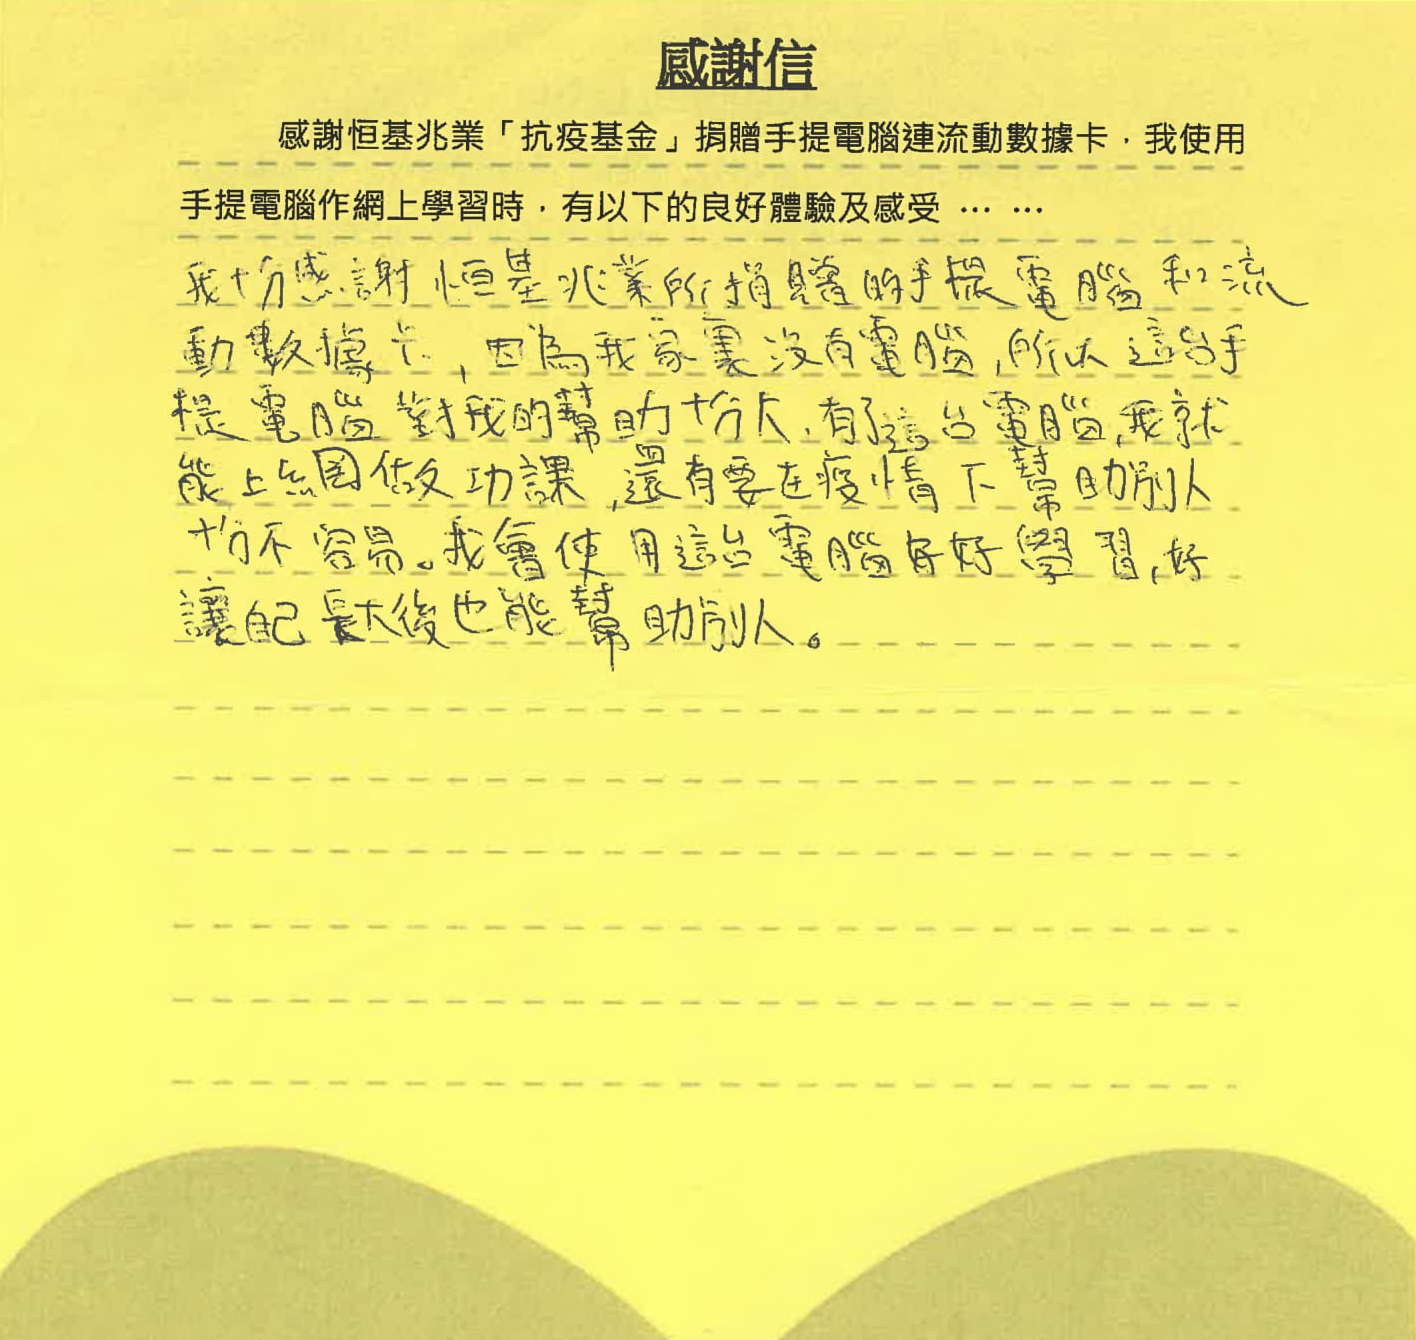 感謝信
感謝恒基兆業「抗疫基金」捐贈手提電腦連流動數據卡，我使用
手提電腦作網上學習時，有以下的良好體驗及感受 … …
我十分感謝恒基兆業所捐贈的手提電腦和流
動數據卡，因為我家裏沒有電腦，所以這台手
提電腦對我的幫助十分大，有了這台電腦，我就
能上網做功課，還有要在疫情下幫助別人
十分不容易。我會使用這台電腦好好學習，好
讓自己長大後也能幫助別人。